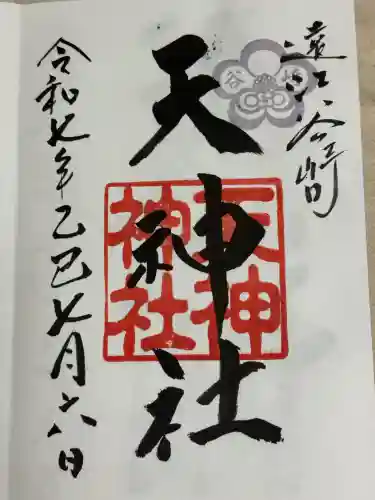 遠江谷崎
天神社
天神
神社
令和七年乙巳七月六日